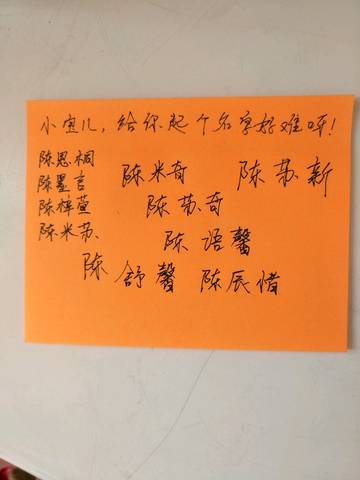 小宝儿，给你起个名字好难呀！
陈思桐
陈墨言
陈梓萱
陈米苏、
陈米奇
陈苏新
陈苏奇
陈语馨
陈舒馨
陈辰惜